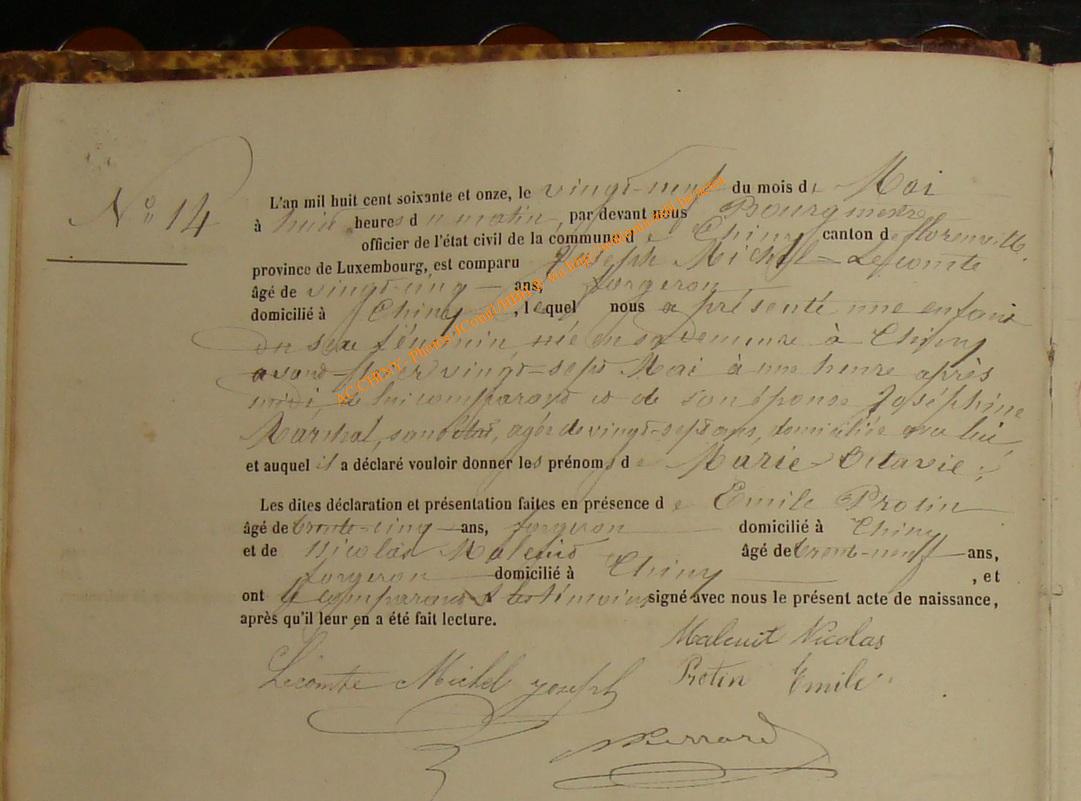 N° 14
L'an mil huit cent soixante et onze, le vingt-neuf du mois de Mai
à huit heures du matin, par devant nous Bourgmestre
officier de l'état civil de la commune de Chiny canton de florenville
province de Luxembourg, est comparu Joseph Michel Lecomte
âgé de vingt-cinq ans, forgeron
domicilié à Chiny, lequel nous a présenté une enfant
du sexe féminin, née en sa demeure à Chiny
avant-hier vingt-sept Mai à une heure après
midi, de lui comparant et de son épouse Joséphine
Maréchal, sans état, agée de vingt-sept ans, domiciliée avec lui
et auquel il a déclaré vouloir donner les prénoms de Marie Octavie.
Les dites déclaration et présentation faites en présence de Emile Protin
âgé de trente-cinq ans, forgeron domicilié à Chiny
et de Nicolas Maleuit âgé de trente-neuf ans,
forgeron domicilié à Chiny, et
ont le comparant & les témoins signé avec nous le présent acte de naissance,
après qu'il leur en a été fait lecture.
Maleuit Nicolas
Lecomte Michel joseph Protin Emile